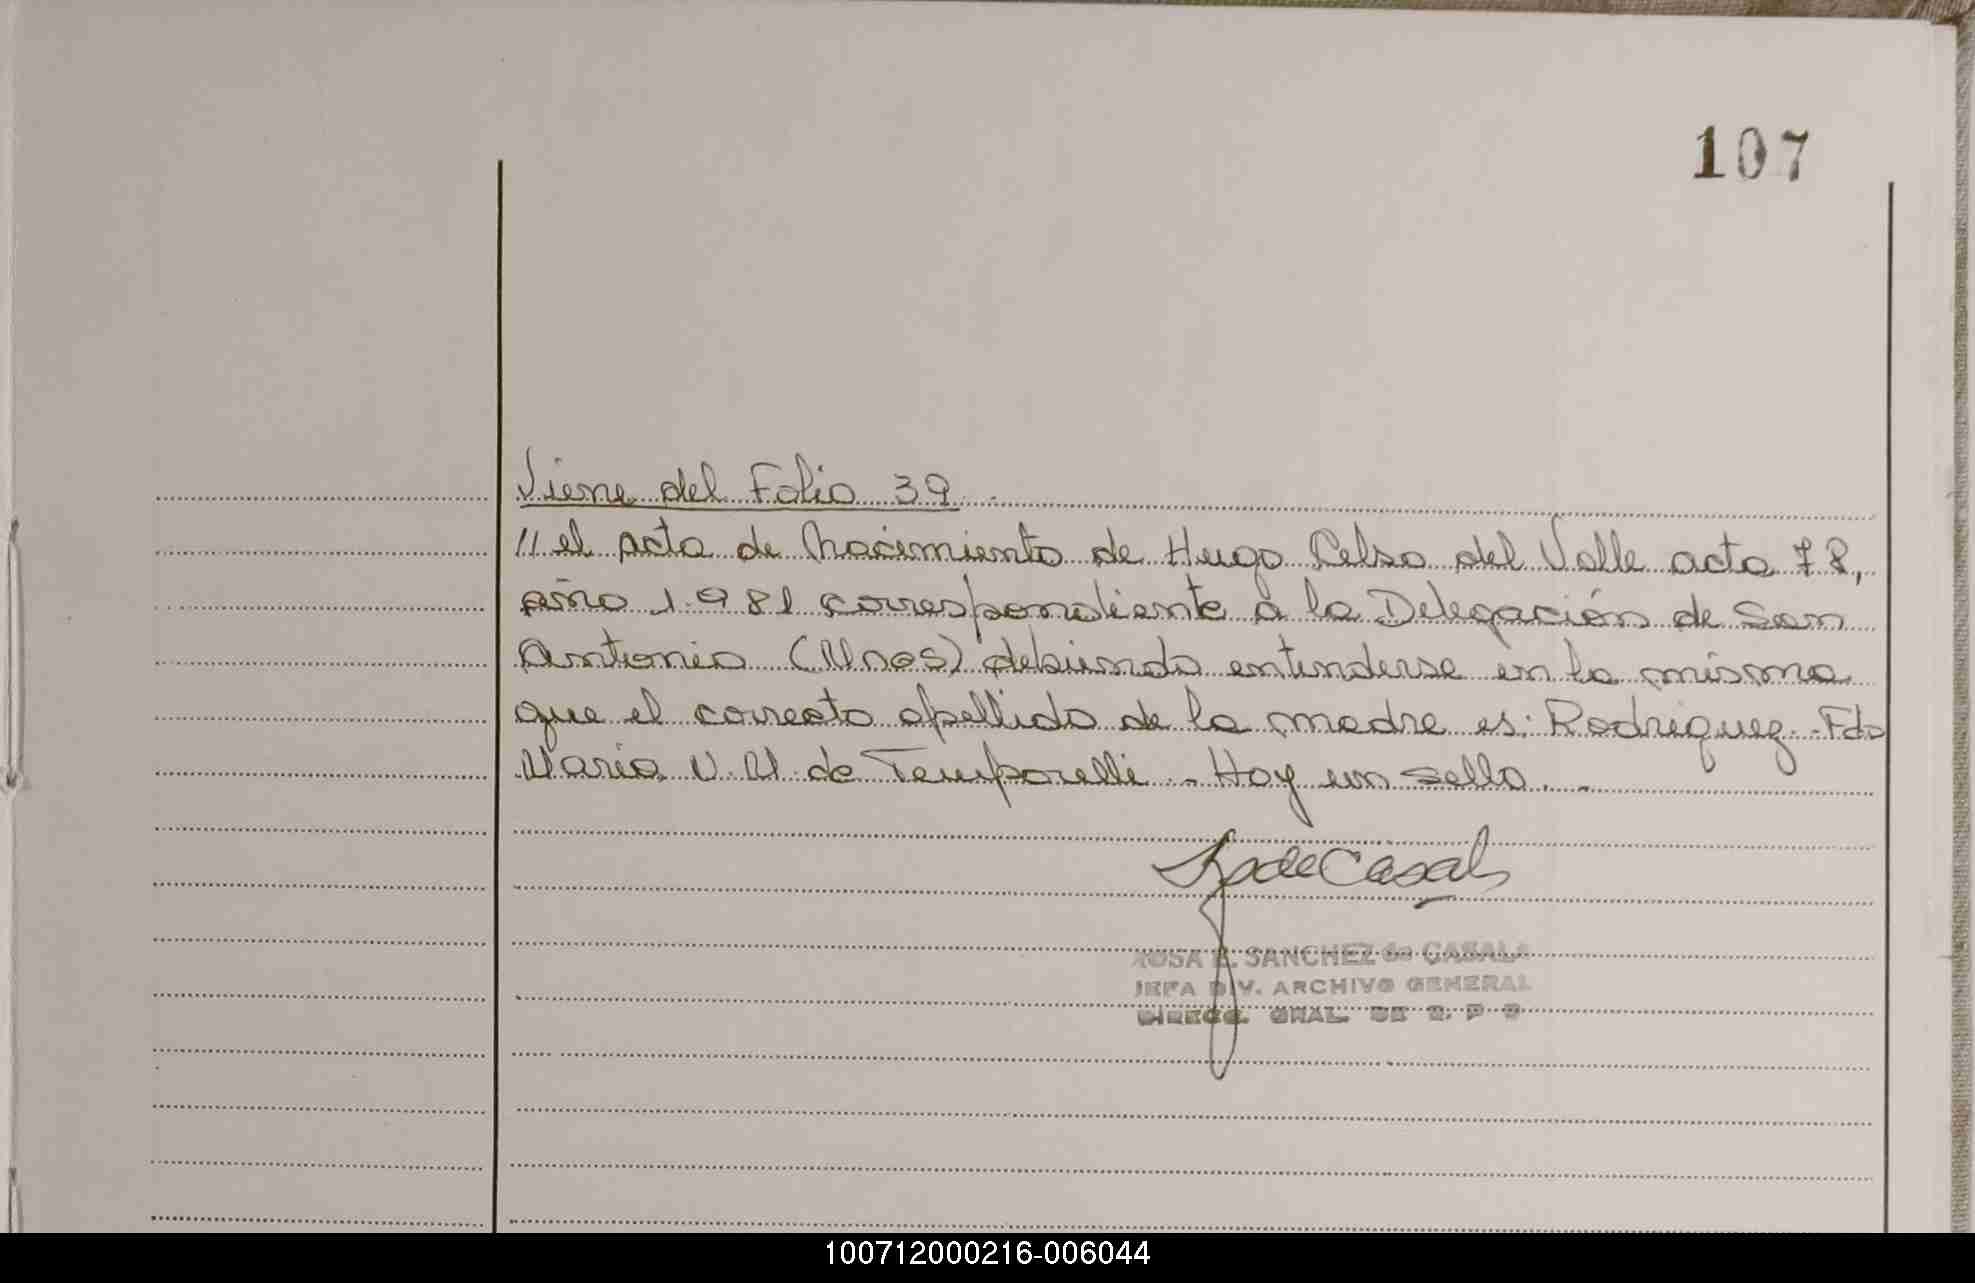 107
Viene del Folio 39.
// el acta de Nacimiento de Hugo Celso del Valle acta 78,
año 1.981 correspondiente a la Delegación de San
Antonio (Mnes) debiendo entenderse en la misma
que el correcto apellido de la madre es: Rodriguez.- Fdo
Maria V. M. de Temporelli - Hay un sello.-
de Casal
ROSA E. SANCHEZ de CASALS
JEFA DIV. ARCHIVO GENERAL
DIRECC. GRAL. DE R. P. P
100712000216-006044